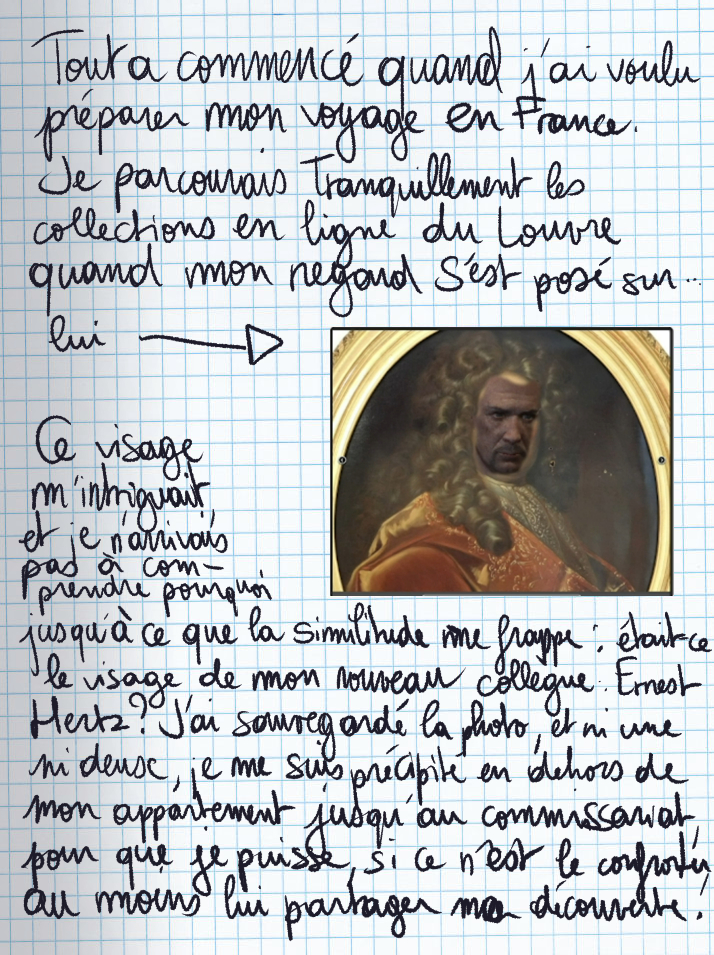 Tout a commencé quand j'ai voulu
préparer mon voyage en France.
Je parcourais tranquillement les
collections en ligne du Louvre
quand mon regard s'est posé sur...
lui
Ce visage
m'intriguait,
et je n'arrivais
pas à com-
prendre pourquoi
jusqu'à ce que la similitude me frappe : était-ce
le visage de mon nouveau collègue : Ernest
Hertz? J'ai sauvegardé la photo, et ni une
ni deux, je me suis précipité en dehors de
mon appartement jusqu'au commissariat,
pour que je puisse, si ce n'est le confronter
au moins lui partager ma découverte!